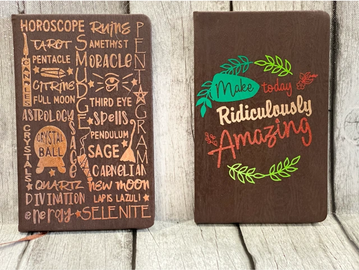 HOROSCOPE
Ruins
TAROT
AMETHYST
PENTACLE
ORACLE
CITRINE
FULL MOON
THIRD EYE
ASTROLOGY
Spells
PENDULUM
CRYSTAL
BALL
SAGE
CARNELIAN
QUARTZ
new moon
DIVINATION
LAPIS LAZULI
energy
SELENITE
PENTAGRAM
CRYSTALS
Make today
Ridiculously
Amazing